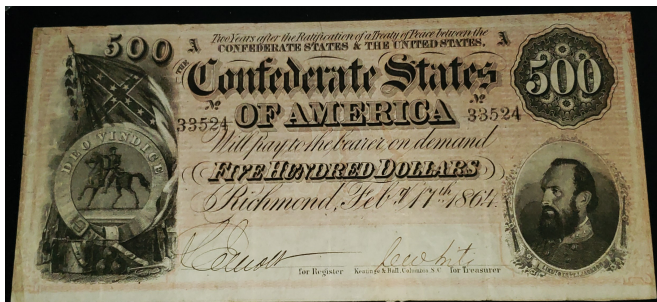 500
A
Two Years after the Ratification of a Treaty of Peace between the
CONFEDERATE STATES & THE UNITED STATES.
A
THE
Confederate States
500
No
33524
OF AMERICA
No
33524
Will pay to the bearer on demand
FIVE HUNDRED DOLLARS
Richmond, Feb. 17th 1864
DEO VINDICE
for Register
Keatinge & Ball, Columbia, S.C.
for Treasurer